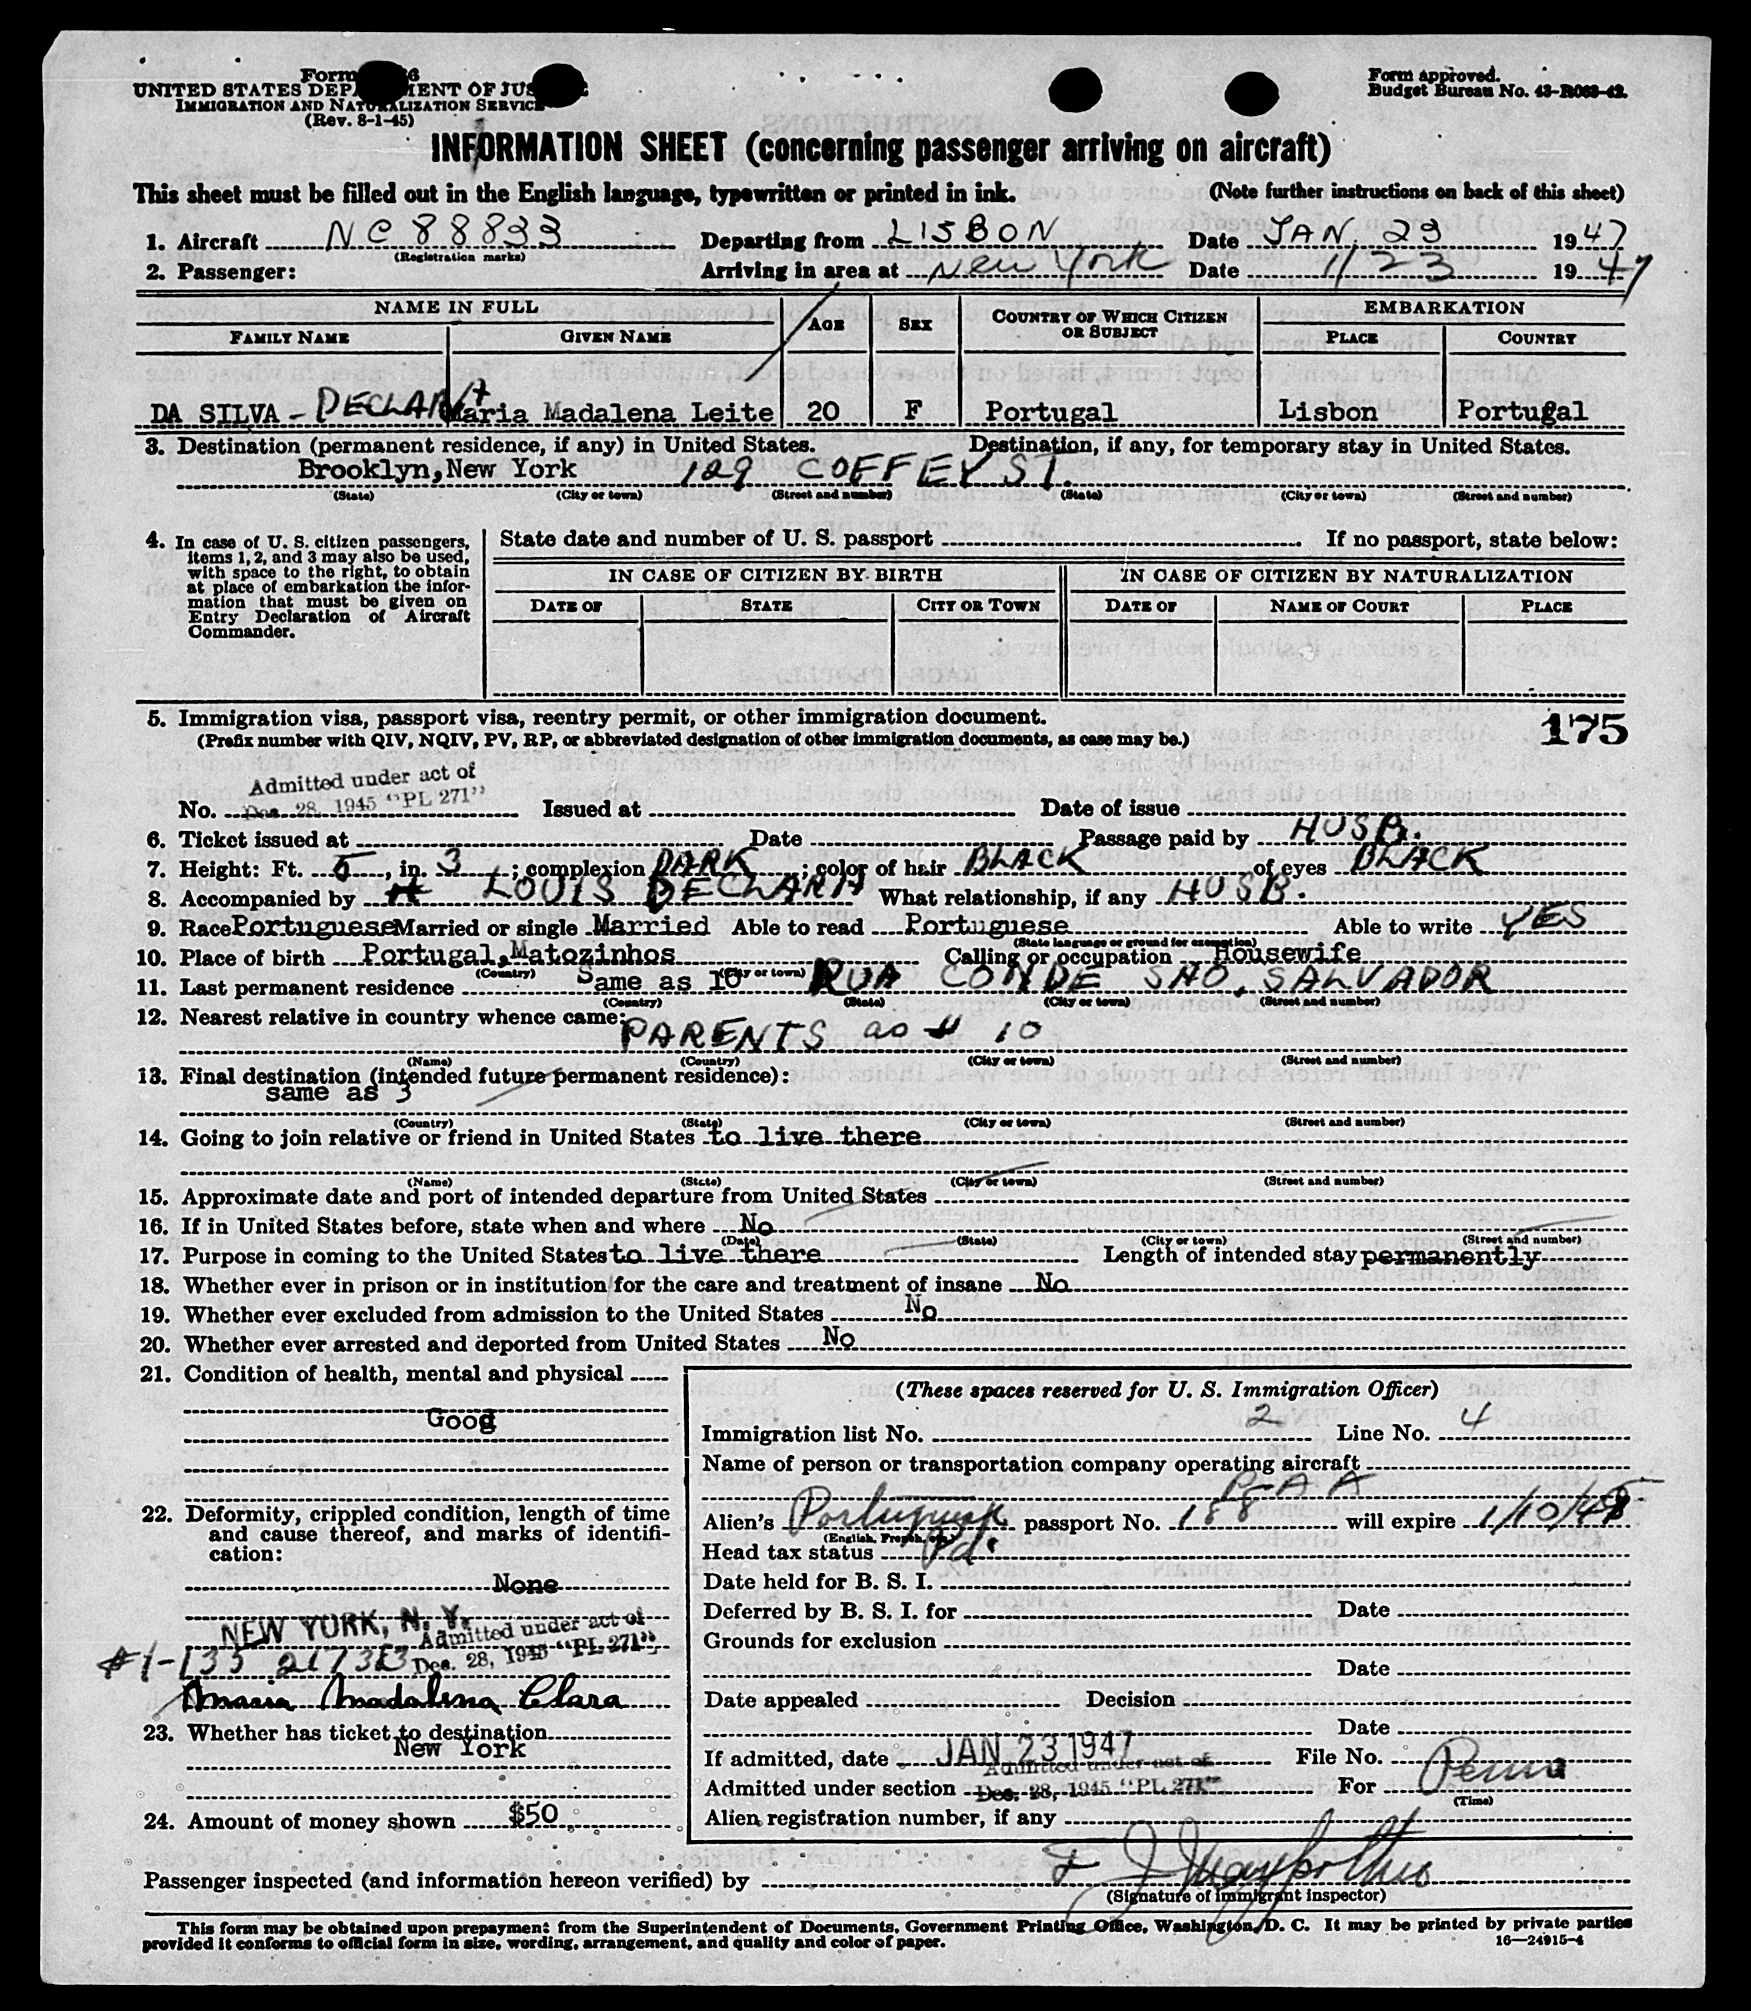 Form 6
UNITED STATES DEPARTMENT OF JUSTICE
IMMIGRATION AND NATURALIZATION SERVICE
(Rev. 8-1-45)
Form approved.
Budget Bureau No. 43-R063-42.
INFORMATION SHEET (concerning passenger arriving on aircraft)
This sheet must be filled out in the English language, typewritten or printed in ink. (Note further instructions on back of this sheet)
1. Aircraft NC 88833 Departing from LISBON Date JAN. 23 1947
(Registration marks)
2. Passenger: Arriving in area at New York Date 1/23 1947
NAME IN FULL AGE SEX COUNTRY OF WHICH CITIZEN OR SUBJECT EMBARKATION
FAMILY NAME GIVEN NAME PLACE COUNTRY
DA SILVA - DECLARA Maria Madalena Leite 20 F Portugal Lisbon Portugal
3. Destination (permanent residence, if any) in United States. Destination, if any, for temporary stay in United States.
Brooklyn, New York 129 COFFEY ST.
(State) (City or town) (Street and number) (State) (City or town) (Street and number)
4. In case of U. S. citizen passengers, items 1, 2, and 3 may also be used, with space to the right, to obtain at place of embarkation the information that must be given on Entry Declaration of Aircraft Commander.
State date and number of U. S. passport If no passport, state below:
IN CASE OF CITIZEN BY BIRTH IN CASE OF CITIZEN BY NATURALIZATION
DATE OF STATE CITY OR TOWN DATE OF NAME OF COURT PLACE
5. Immigration visa, passport visa, reentry permit, or other immigration document. 175
(Prefix number with QIV, NQIV, PV, RP, or abbreviated designation of other immigration documents, as case may be.)
Admitted under act of
No. Dec. 28, 1945 "PL 271" Issued at Date of issue
6. Ticket issued at Date Passage paid by HUSB.
7. Height: Ft. 5, in. 3; complexion DARK; color of hair BLACK of eyes BLACK
8. Accompanied by LOUIS DECLARA What relationship, if any HUSB.
9. Race Portuguese Married or single Married Able to read Portuguese Able to write YES
(State language or ground for exemption)
10. Place of birth Portugal, Matozinhos Calling or occupation Housewife
(Country) (City or town)
11. Last permanent residence Same as 10 RUA CONDE SAO. SALVADOR
(Country) (State) (City or town) (Street and number)
12. Nearest relative in country whence came:
PARENTS as # 10
(Name) (Country) (City or town) (Street and number)
13. Final destination (intended future permanent residence):
same as 3
(Country) (State) (City or town) (Street and number)
14. Going to join relative or friend in United States to live there
(Name) (State) (City or town) (Street and number)
15. Approximate date and port of intended departure from United States
16. If in United States before, state when and where No
(Date) (State) (City or town) (Street and number)
17. Purpose in coming to the United States to live there Length of intended stay permanently
18. Whether ever in prison or in institution for the care and treatment of insane No
19. Whether ever excluded from admission to the United States No
20. Whether ever arrested and deported from United States No
21. Condition of health, mental and physical
Good
22. Deformity, crippled condition, length of time and cause thereof, and marks of identification:
None
NEW YORK, N. Y.
Admitted under act of
Dec. 28, 1945 "PL 271"
Maria Madalena Clara
23. Whether has ticket to destination
New York
24. Amount of money shown $50
(These spaces reserved for U. S. Immigration Officer)
Immigration list No. 2 Line No. 4
Name of person or transportation company operating aircraft
PAA
Alien's Portuguese passport No. 188 will expire 1/10/48
(English, French, etc.)
Head tax status Pd.
Date held for B. S. I.
Deferred by B. S. I. for Date
Grounds for exclusion
Date
Date appealed Decision
Date
If admitted, date JAN 23 1947 File No.
Admitted under act of
Admitted under section Dec. 28, 1945 "PL 271" For Perm
(Time)
Alien registration number, if any
Passenger inspected (and information hereon verified) by
(Signature of immigrant inspector)
This form may be obtained upon prepayment from the Superintendent of Documents, Government Printing Office, Washington, D. C. It may be printed by private parties
provided it conforms to official form in size, wording, arrangement, and quality and color of paper. 16—24915-4